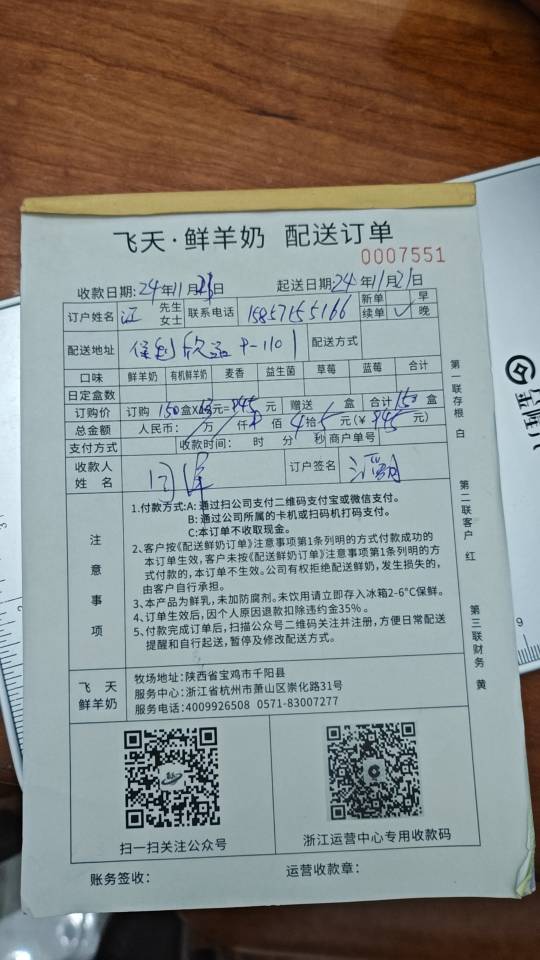 飞天·鲜羊奶 配送订单
0007551
收款日期:24年11月21日 起送日期:24年11月21日
订户姓名 汪 先生 女士 联系电话 15857155166 新单 续单 ✓ 早 晚
配送地址 9-1101 配送方式
口味 鲜羊奶 有机鲜羊奶 麦香 益生菌 草莓 蓝莓 合计
日定盒数
订购价 订购 150盒X 元=945元 赠送 盒 合计150盒
总金额 人民币: 万 仟 9佰4拾5元(¥945元)
支付方式 收款时间: 时 分 秒 商户单号
收款人姓名 订户签名
注意事项
1.付款方式:A:通过扫公司支付二维码支付宝或微信支付。
B:通过公司所属的卡机或扫码机打码支付。
C:本订单不收取现金。
2、客户按《配送鲜奶订单》注意事项第1条列明的方式付款成功的
本订单生效,客户未按《配送鲜奶订单》注意事项第1条列明的方
式付款的,本订单不生效。公司有权拒绝配送鲜奶,发生损失的,
由客户自行承担。
3、本产品为鲜乳,未加防腐剂。未饮用请立即存入冰箱2-6°C保鲜。
4、订单生效后,因个人原因退款扣除违约金35%。
5、付款完成订单后,扫描公众号二维码关注并注册,方便日常配送
提醒和自行起送,暂停及修改配送方式。
飞天
鲜羊奶
牧场地址:陕西省宝鸡市千阳县
服务中心:浙江省杭州市萧山区崇化路31号
服务电话:4009926508 0571-83007277
扫一扫关注公众号
浙江运营中心专用收款码
账务签收:
运营收款章:
第一联存根 白
第二联客户 红
第三联财务 黄